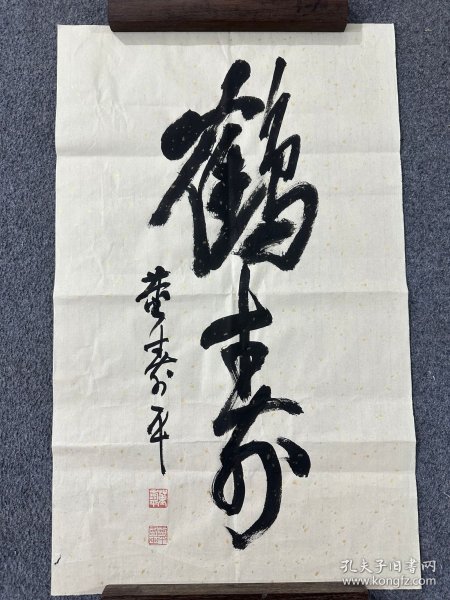 鹤寿
董寿平
孔夫子旧书网
www.kongfz.com